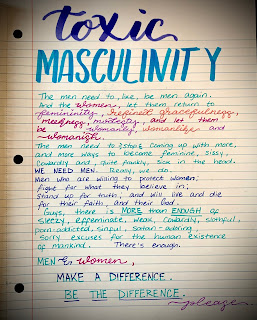 toxic
MASCULINITY
The men need to live, be men again.
And the women, let them return to
femininity, refined gracefulness,
meekness, modesty, and let them
be womanly, womanlike and
womanish.
The men need to stop coming up with more,
and more ways to become feminine, sissy,
cowardly and, quite frankly, sick in the head.
WE NEED MEN. Really, we do.
Men who are willing to protect women;
fight for what they believe in;
Stand up for truth; and will live and die
for their faith, and their God.
Guys, there is MORE than ENOUGH of
sleazy, effeminate, weak, cowardly, slothful,
porn-addicted, sinful, Satan-adoring,
sorry excuses for the human existence
of mankind. There's enough.
MEN & women,
MAKE A DIFFERENCE.
BE THE DIFFERENCE.
~please~